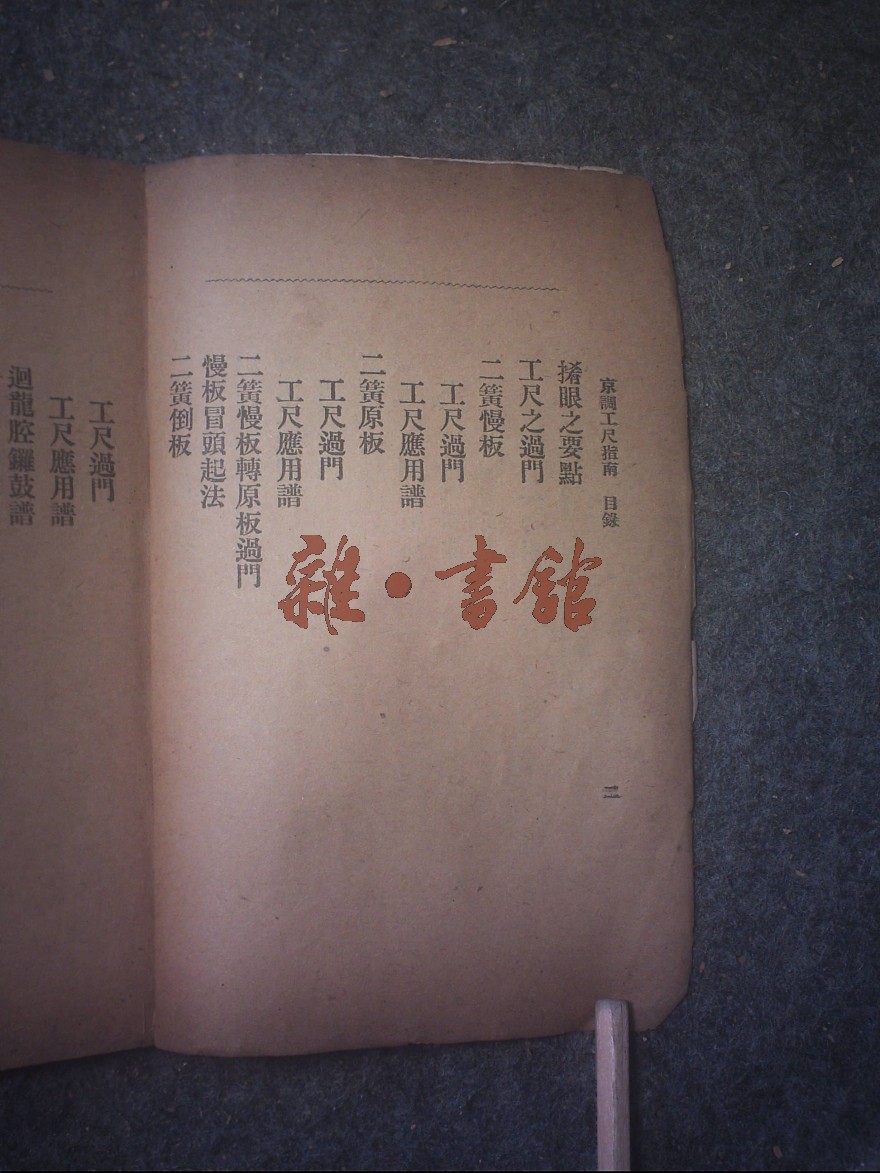 京調工尺指南　目錄
揹眼之要點
工尺之過門
二簧慢板
工尺過門
工尺應用譜
二簧原板
工尺過門
工尺應用譜
二簧慢板轉原板過門
慢板冒頭起法
二簧倒板
二
工尺過門
工尺應用譜
迴龍腔鑼鼓譜
雜·書館